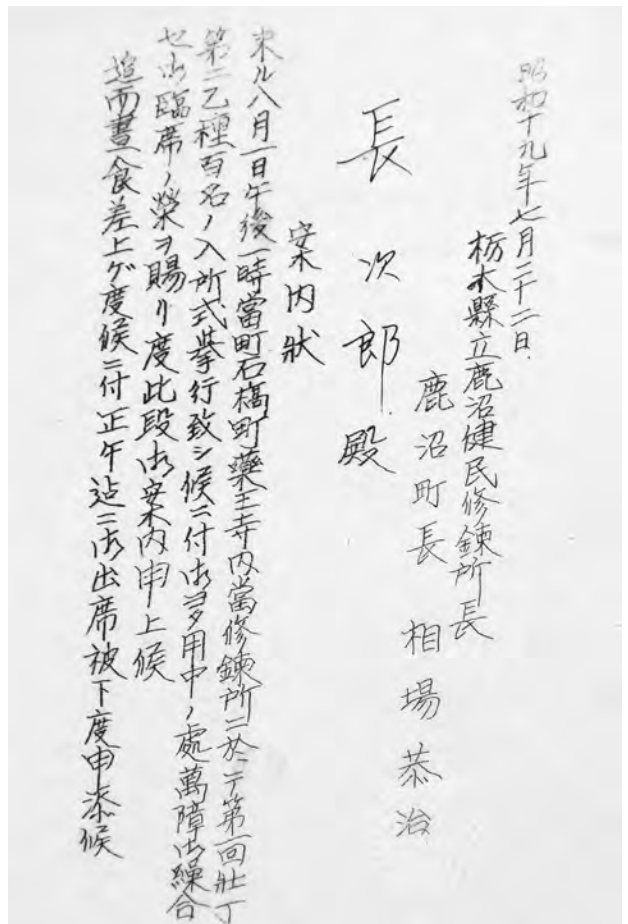 昭和十九年七月二十二日
栃木縣立鹿沼健民修錬所長
鹿沼町長 相場恭治
長 次郎殿
案内狀
来ル八月一日午後一時當町石橋町藥王寺内當修錬所ニ於テ第一回壯丁
第二乙種百名ノ入所式挙行致シ候ニ付御多用中ノ處萬障御繰合
セ御臨席ノ榮ヲ賜リ度此段御案内申上候
追而晝食差上ゲ度候ニ付正午迠ニ御出席被下度申添候